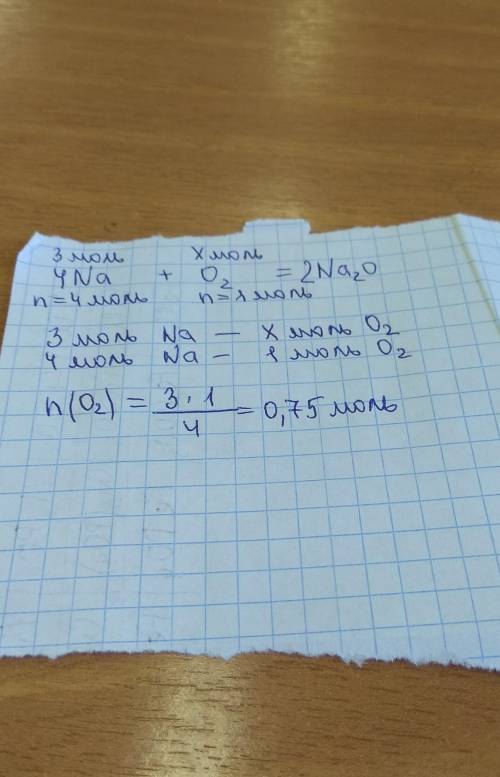 3 моль x моль
4Na + O₂ = 2Na₂O
n=4 моль n=1 моль
3 моль Na — x моль O₂
4 моль Na — 1 моль O₂
n(O₂) = 3·1/4 = 0,75 моль